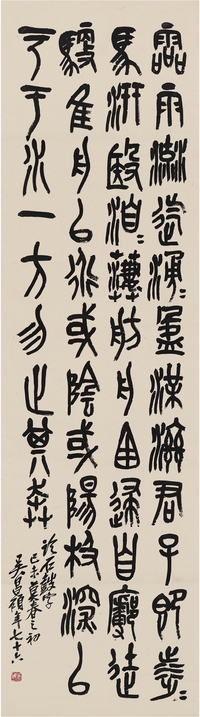 霝雨流迄湧〻盈渫濟君子即涉〻
馬汧殹洎〻萋〻舫舟囪逮自廓徒
馭隹舟以行或陰或陽极深以
于水一方勿止其奔
臨石鼓字
己未莫春之初
吳昌碩年七十六